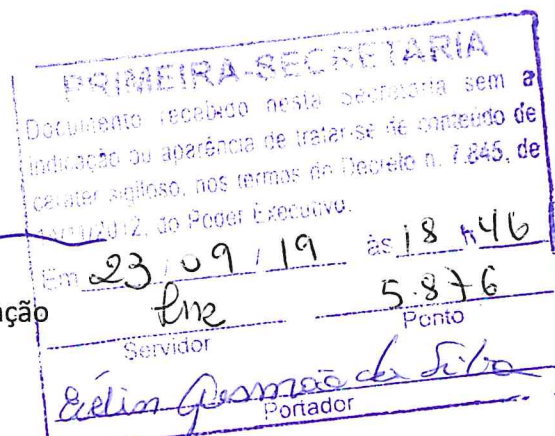 PRIMEIRA-SECRETARIA
Documento recebido nesta Secretaria sem a
indicação ou aparência de tratar-se de conteúdo de
caráter sigiloso, nos termos do Decreto n. 7.845, de
/2012, do Poder Executivo.
Em 23/09/19 às 18h46
ção
5.876
Servidor
Ponto
da Silva
Portador